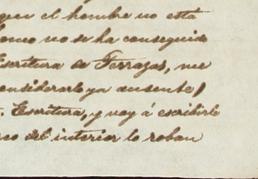 que el hombre no está
como no se ha conseguido
Escritura de Terrazas, me
considerarlo ya ausente,
. Escritura, y voy á escribirle
del interior lo roban